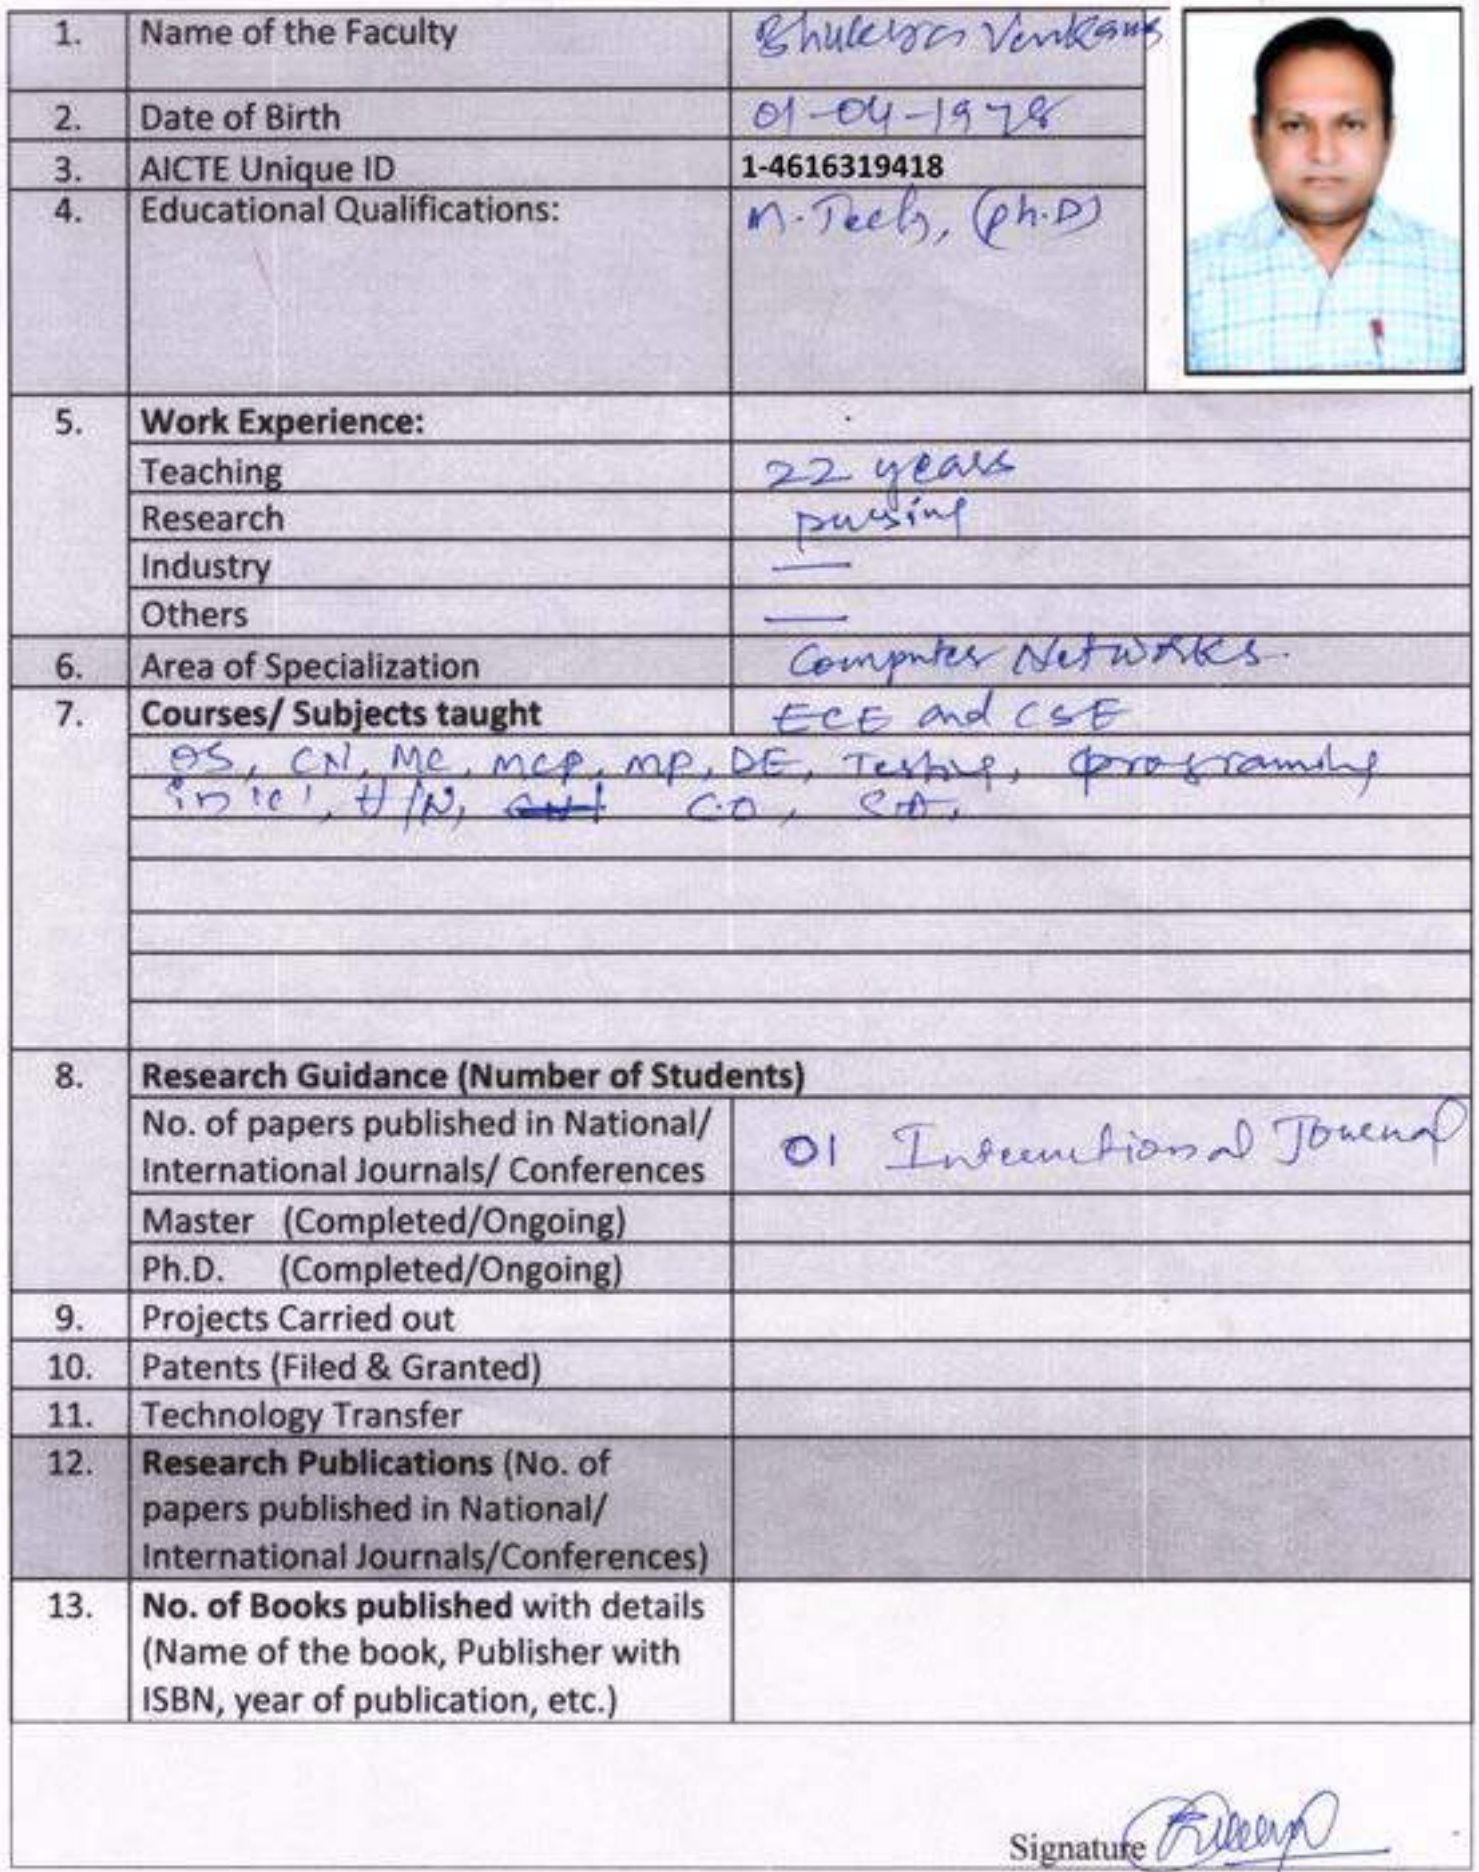 1. Name of the Faculty Bhukya Venkanna
2. Date of Birth 01-04-1978
3. AICTE Unique ID 1-4616319418
4. Educational Qualifications: M.Tech, (Ph.D)
5. Work Experience:
Teaching 22 years
Research pursing
Industry —
Others —
6. Area of Specialization Computer Networks.
7. Courses/ Subjects taught ECE and CSE
OS, CN, MC, MCP, MP, DE, Testing, programing
in 'c', H/N, CO,
8. Research Guidance (Number of Students)
No. of papers published in National/
International Journals/ Conferences 01 International Journal
Master (Completed/Ongoing)
Ph.D. (Completed/Ongoing)
9. Projects Carried out
10. Patents (Filed & Granted)
11. Technology Transfer
12. Research Publications (No. of
papers published in National/
International Journals/Conferences)
13. No. of Books published with details
(Name of the book, Publisher with
ISBN, year of publication, etc.)
Signature